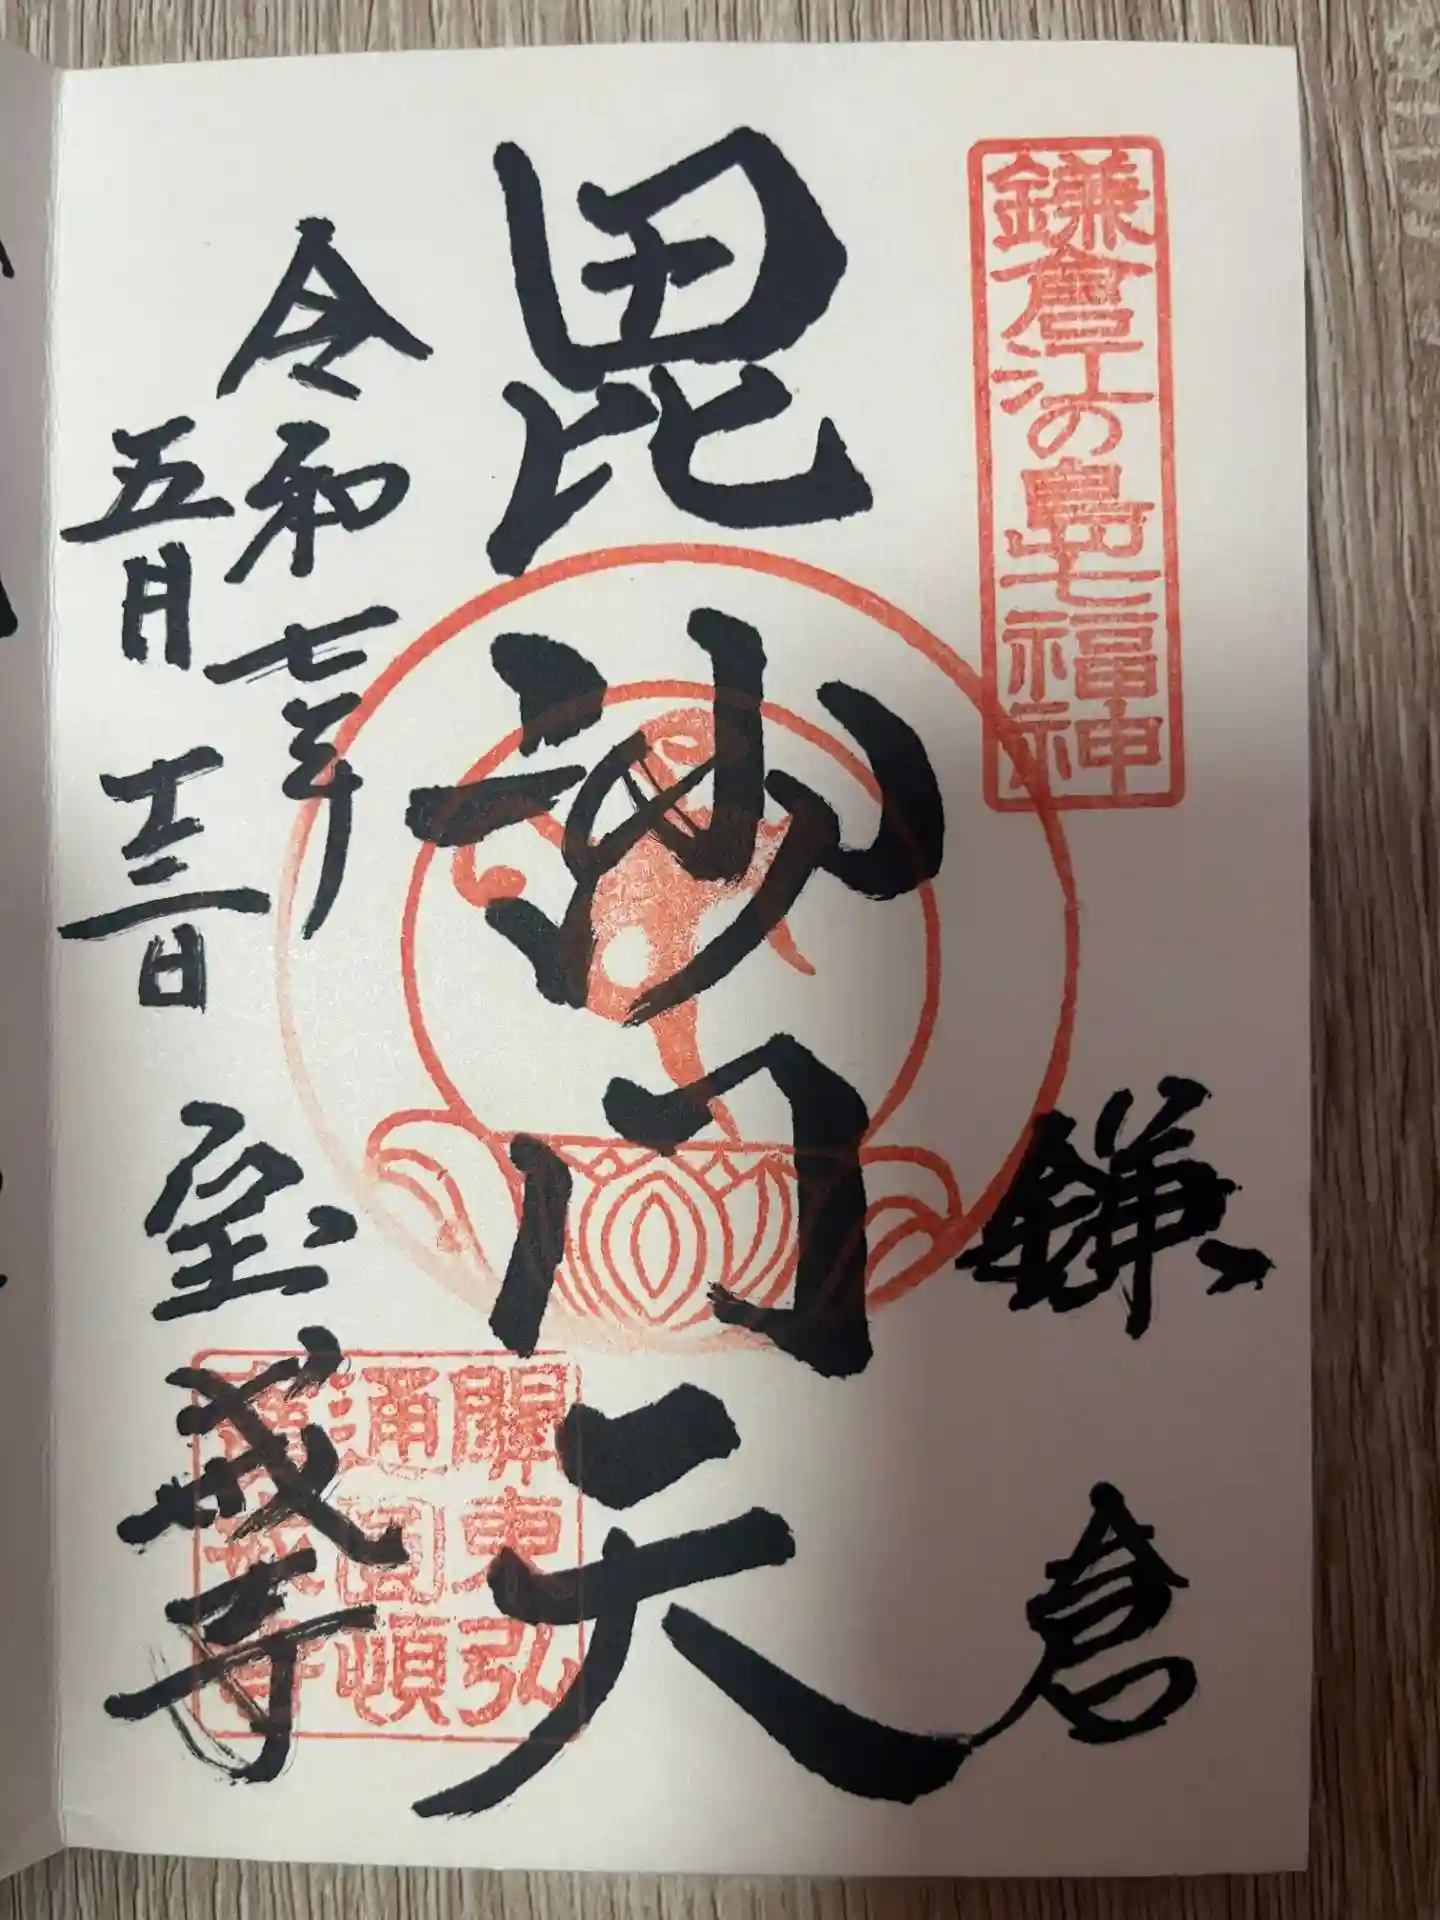 鎌倉江の島七福神
鎌倉
毘沙門天
令和七年
五月十三日
宝戒寺
關東弘
通圓頓
寶戒寺